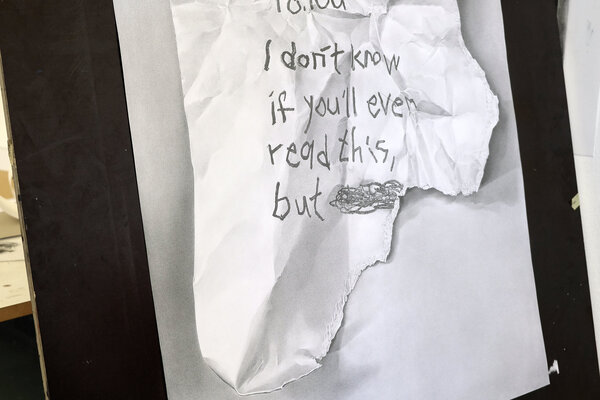 I don't know
if you'll ever
read this,
but